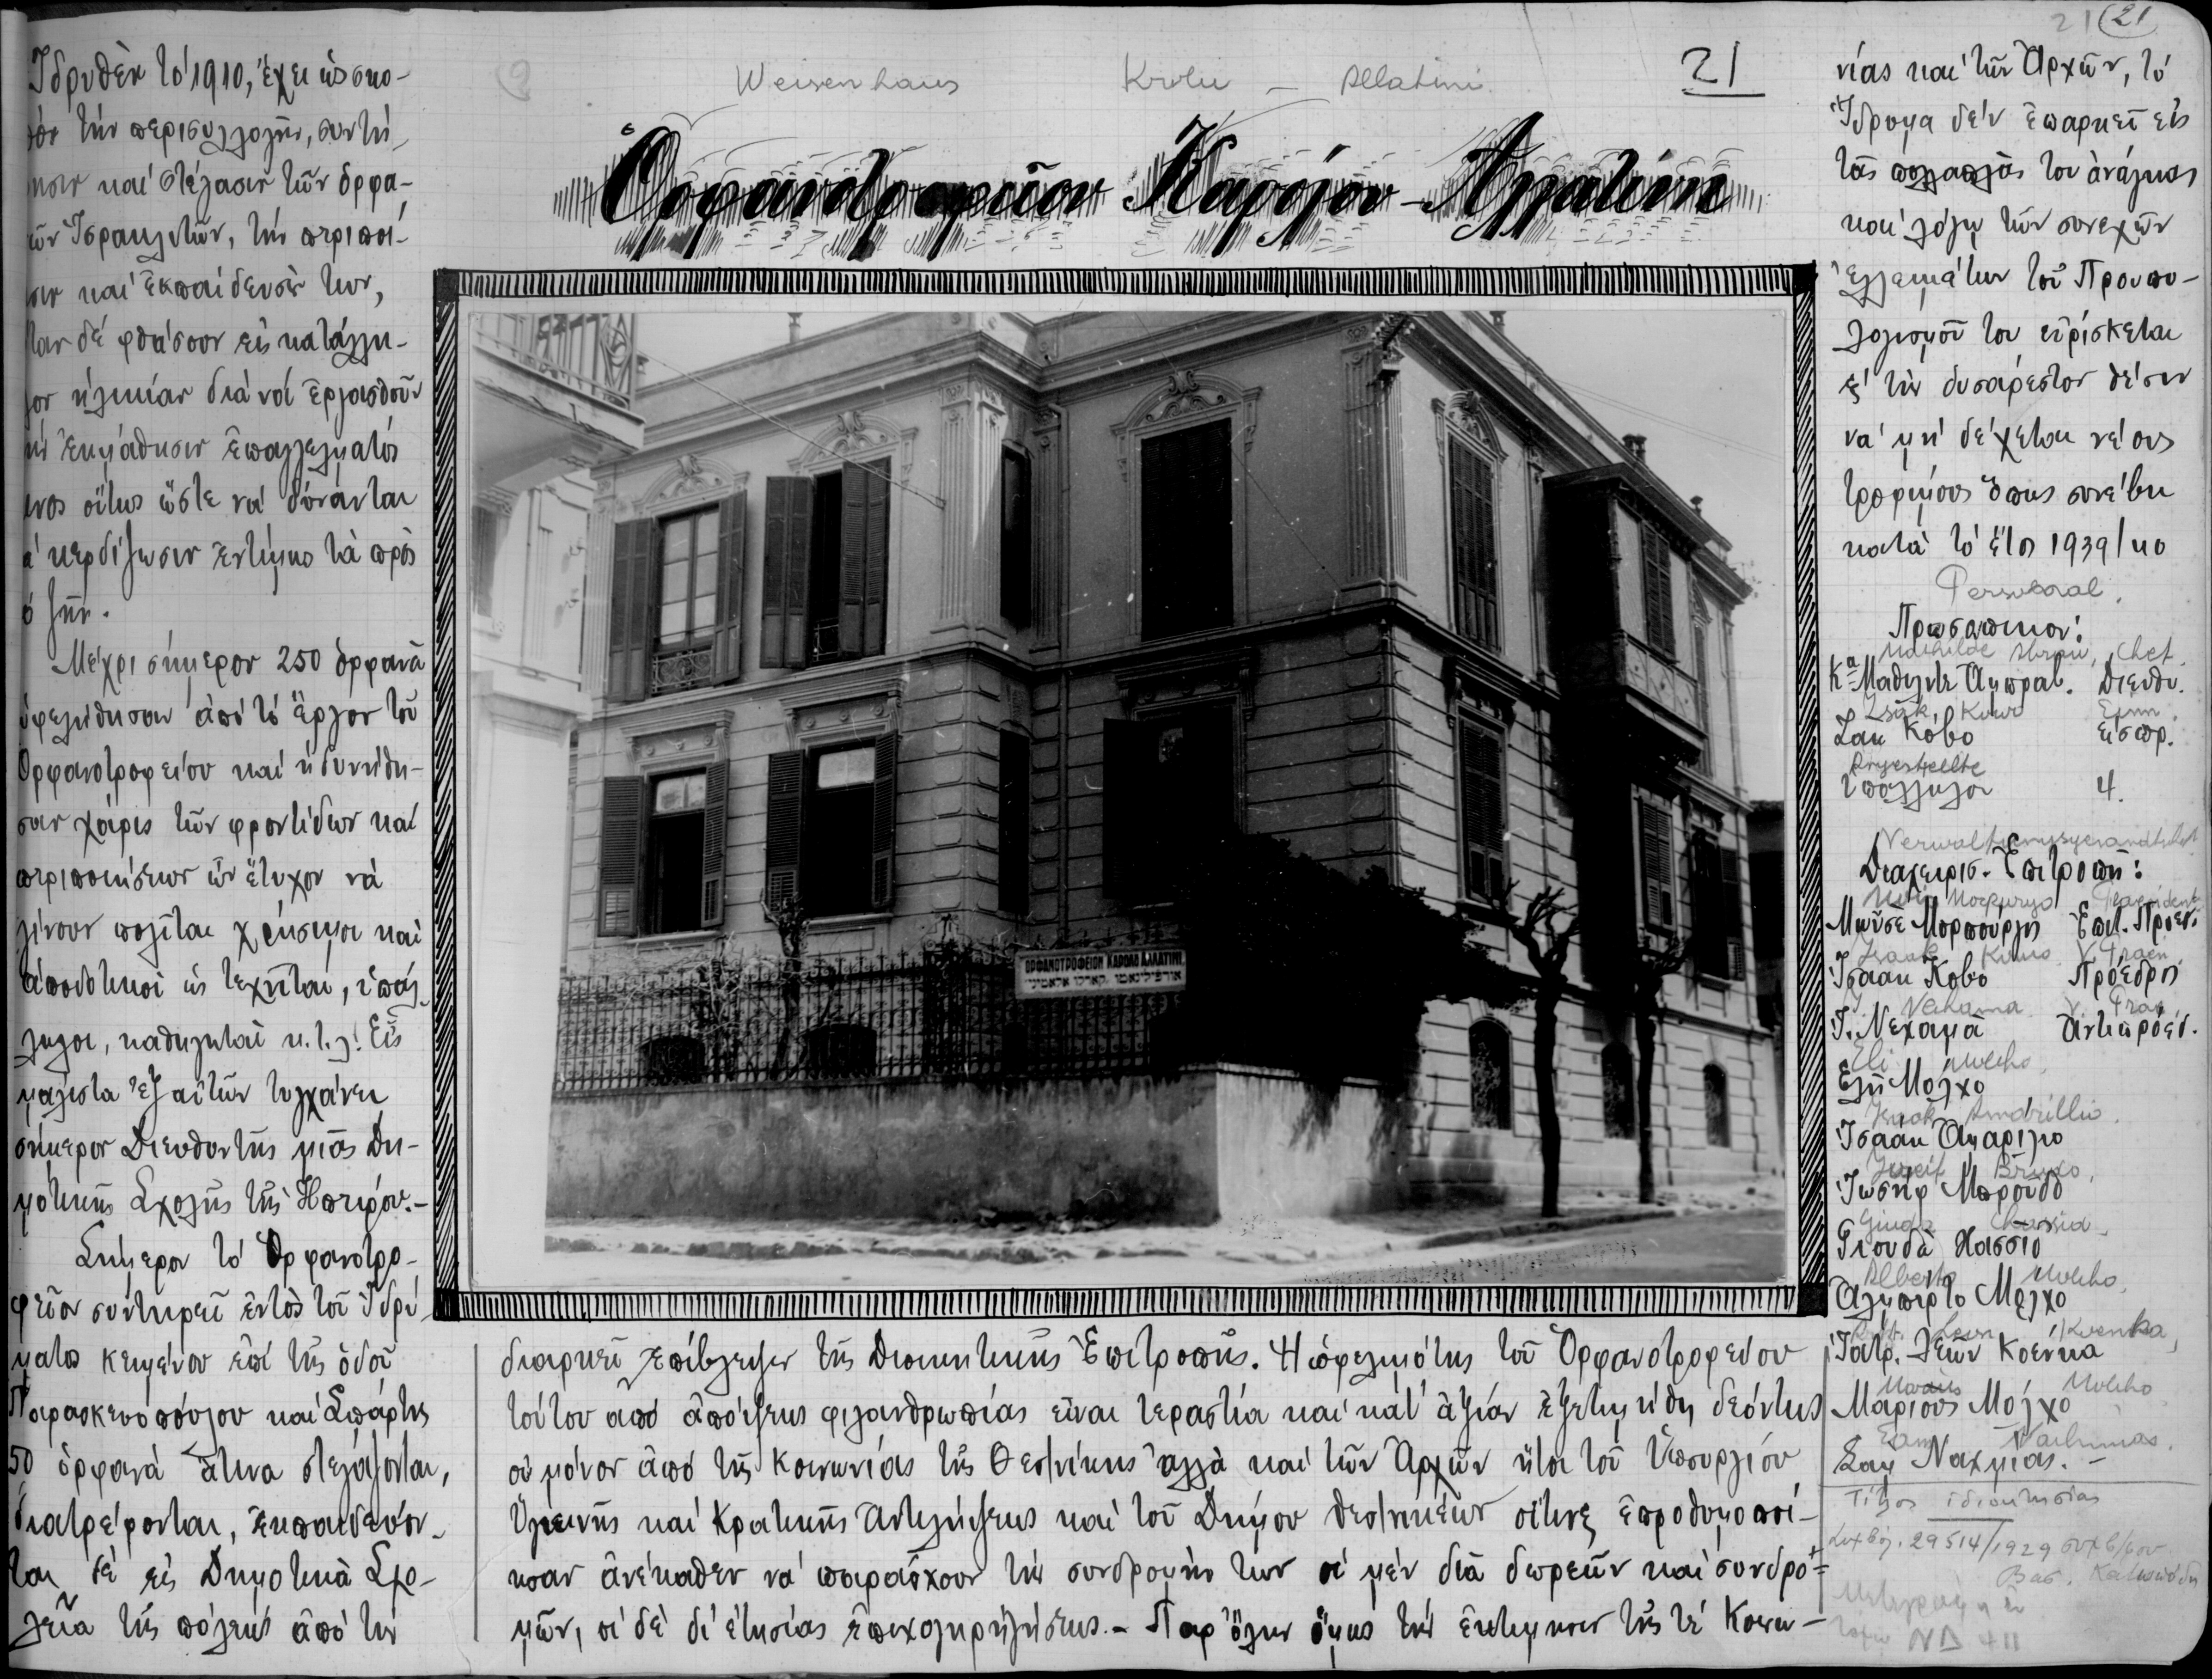 21 (21)
21
Weisenhaus Karlu - Allatini
Ὀρφανοτροφεῖον Καρόλου-Ἀλλατίνι
Ἱδρυθὲν τὸ 1910, ἔχει ὡς σκο-
πὸν τὴν περισυλλογὴν, συντή-
ρησιν καὶ στέγασιν τῶν ὀρφα-
νῶν Ἰσραηλιτῶν, τὴν περιποί-
ησιν καὶ ἐκπαίδευσίν των,
ὅταν δὲ φθάσουν εἰς κατάλλη-
λον ἡλικίαν διὰ νὰ ἐργασθοῦν
τὴν ἐκμάθησιν ἐπαγγέλματός
τινος οὕτως ὥστε νὰ δύνανται
νὰ κερδίζωσιν ἐντίμως τὰ πρὸς
τὸ ζῆν.
Μέχρι σήμερον 250 ὀρφανὰ
ὠφελήθησαν ἀπὸ τὸ ἔργον τοῦ
Ὀρφανοτροφείου καὶ ἠδυνήθη-
σαν χάρις τῶν φροντίδων καὶ
περιποιήσεων ὧν ἔτυχον νὰ
γίνουν πολῖται χρήσιμοι καὶ
ἀποδοτικοὶ ὡς τεχνῖται, ὑπάλ-
ληλοι, καθηγηταὶ κ.τ.λ. Εἷς
μάλιστα ἐξ αὐτῶν τυγχάνει
σήμερον Διευθυντὴς μιᾶς Δη-
μοτικῆς Σχολῆς τῆς Ἠπείρου.-
Σήμερον τὸ Ὀρφανοτρο-
φεῖον συντηρεῖ ἐντὸς τοῦ Ἱδρύ-
ματος κειμένου ἐπὶ τῆς ὁδοῦ
Παρασκευοπούλου καὶ Σπάρτης
50 ὀρφανὰ ἅτινα στεγάζονται,
διατρέφονται, ἐκπαιδεύον-
ται δὲ εἰς Δημοτικὰ Σχο-
λεῖα τῆς πόλεως ἀπὸ τὴν
ΟΡΦΑΝΟΤΡΟΦΕΙΟΝ ΚΑΡΟΛΟ ΑΛΛΑΤΙΝΙ
אורפילינאטו קארלו אלאטיני
διαρκεῖ ἐπίβλεψιν τῆς Διοικητικῆς Ἐπιτροπῆς. Ἡ ὠφελιμότης τοῦ Ὀρφανοτροφείου
τούτου ἀπὸ ἀπόψεως φιλανθρωπίας εἶναι τεραστία καὶ κατ' ἀξίαν ἐξετιμήθη δεόντως
οὐ μόνον ἀπὸ τῆς Κοινωνίας τῆς Θεσ/νίκης ἀλλὰ καὶ τῶν Ἀρχῶν ἤτοι τοῦ Ὑπουργίου
Ὑγιεινῆς καὶ Κρατικῆς Ἀντιλήψεως καὶ τοῦ Δήμου Θεσ/νικέων οἵτινες ἐπροθυμοποί-
ησαν ἀνέκαθεν νὰ παράσχουν τὴν συνδρομήν των οἱ μὲν διὰ δωρεῶν καὶ συνδρο-
μῶν, οἱ δὲ δι' ἐτησίας ἐπιχορηγήσεως.- Παρ' ὅλην ὅμως τὴν ἐκτίμησιν τῆς τε Κοινω-
νίας καὶ τῶν Ἀρχῶν, τὸ
Ἵδρυμα δὲν ἐπαρκεῖ εἰς
τὰς πολλαπλὰς του ἀνάγκας
καὶ λόγῳ τῶν συνεχῶν
ἐλλειμάτων τοῦ Προυπο-
λογισμοῦ του εὑρίσκεται
εἰς τὴν δυσάρεστον θέσιν
νὰ μὴ δέχεται νέους
τροφίμους ὅπως συνέβη
κατὰ τὸ ἔτος 1939/40
Personal.
Προσωπικον:
Mathilde Chef.
Κα Μαθιλντε Ἀμπραβ. Διευθυ.
Isak Kuvo
Ζακ Κόβο εἰσπρ.
Angestellte
Ὑπάλληλοι 4.
Διαχειρισ. Ἐπιτροπὴ:
Morpurgo Praesident
Μωῦσε Μορπούργο Ἐπιτ. Πρόεδ.
Isaak Kuvo V. Praes
Ἰσαακ Κοβο Πρόεδρος
J. Nehama V. Praes
Ἰ. Νεχαμᾶ Ἀντιπρόεδ.
Eli Molho
Ελῆ Μόλχο
Isaak Amarillio
Ἰσαὰκ Ἀμαρίλιο
Josef Brudo
Ἰωσὴφ Μπροῦδο
Giuda Chassid
Γιουδὰ Χασσίδ
Alberto Molho
Ἀλμπέρτο Μόλχο
Leon Kuenka
Ἰατρ. Λεὼν Κοένκα
Molho
Μάριους Μόλχο
Sam Nachmias.
Σαμ Ναχμίας.-
Τίτλος ἰδιοκτησίας
Συμβόλ. 29514/1929 συμβ/φου
Βασ.
ΝΔ 411